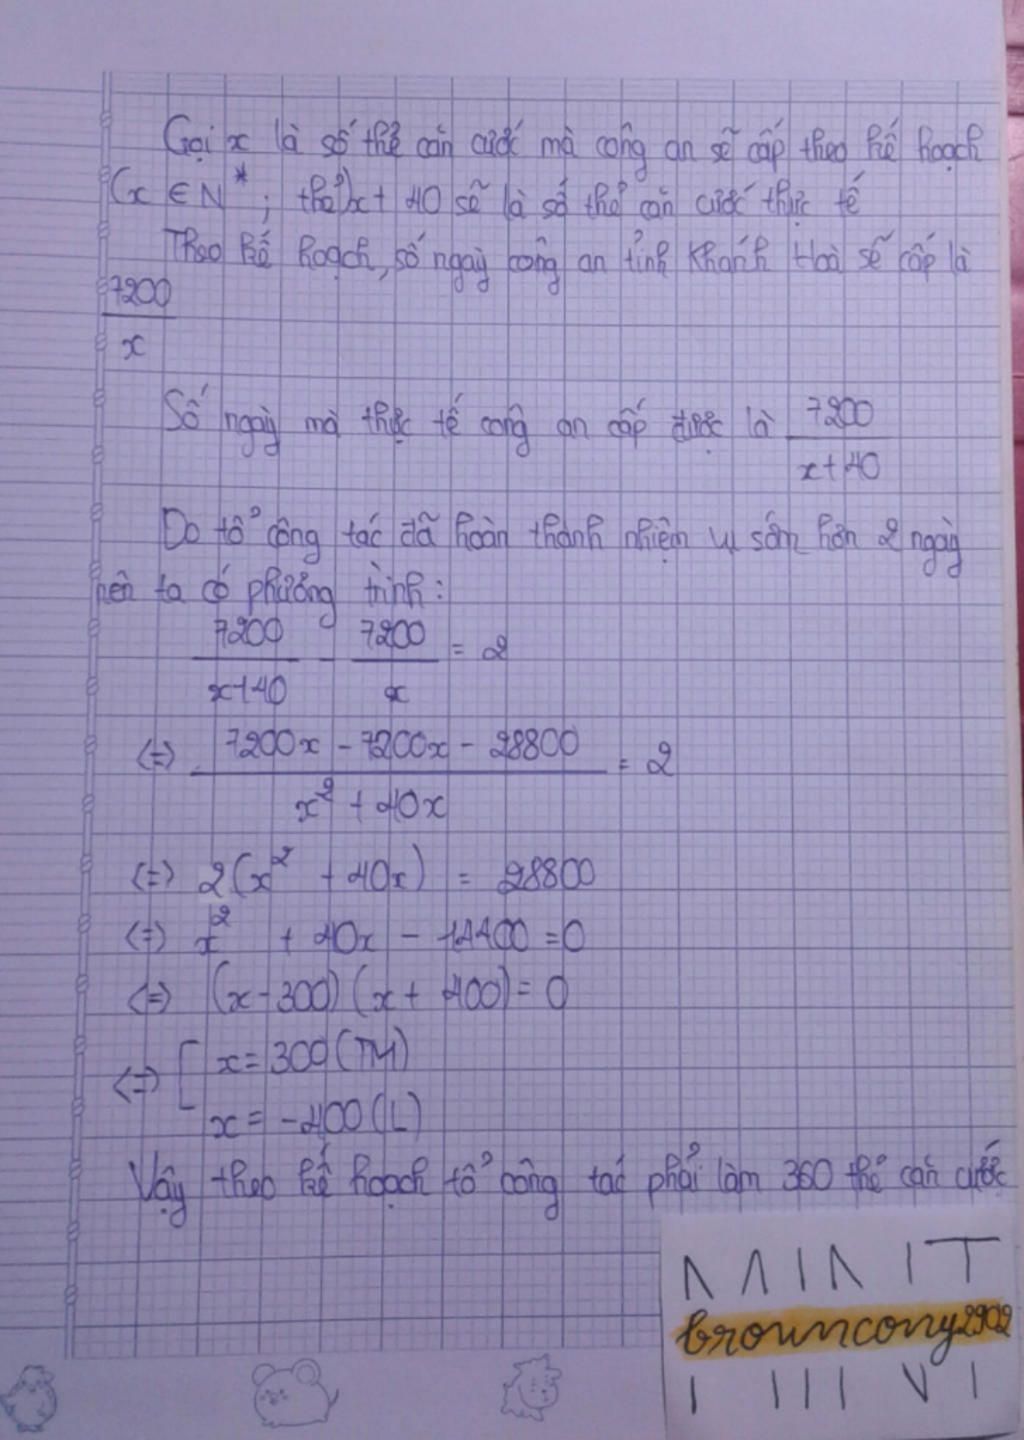 Gọi x là số thẻ căn cước mà công an sẽ cấp theo kế hoạch
(x ∈ N*; thẻ) x + 40 sẽ là số thẻ căn cước thực tế
Theo kế hoạch, số ngày công an tỉnh Khánh Hoà sẽ cấp là
7200
x
Số ngày mà thực tế công an cấp được là 7200
x+40
Do tổ công tác đã hoàn thành nhiệm vụ sớm hơn 2 ngày
nên ta có phương trình:
7200 - 7200 = 2
x+40 x
(=) 7200x - 7200x - 28800 = 2
x² + 40x
(=) 2(x² + 40x) = 28800
(=) x² + 40x - 14400 = 0
(=) (x - 300)(x + 400) = 0
<=> [ x = 300 (TM)
x = -400 (L)
Vậy theo kế hoạch tổ công tác phải làm 360 thẻ căn cước
browncony2902